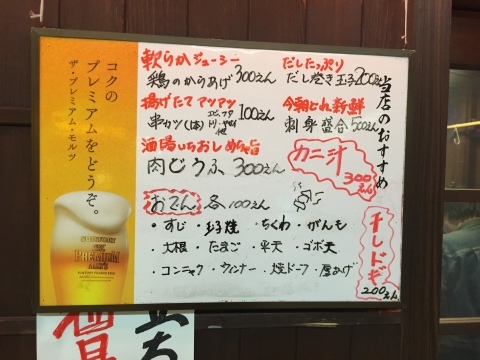 コクの
プレミアムをどうぞ。
ザ・プレミアム・モルツ
SUNTORY
THE
PREMIUM
MALT'S
当店のおすすめ
軟らかジューシー
鶏のからあげ300えん
だしたっぷり
だし巻き玉子200えん
揚げたてアツアツ
串カツ(1本)
100えん
今朝とれ新鮮
刺身盛合500えん
酒場いちおしめちゃ旨
肉どうふ300えん
カニ汁
300えん
おでん各100えん
・すじ・玉子焼・ちくわ・がんも
・大根・たまご・平天・ゴボ天
・コンニャク・ウィンナー・焼ドーフ・厚あげ
干しドギ
200えん
立ち